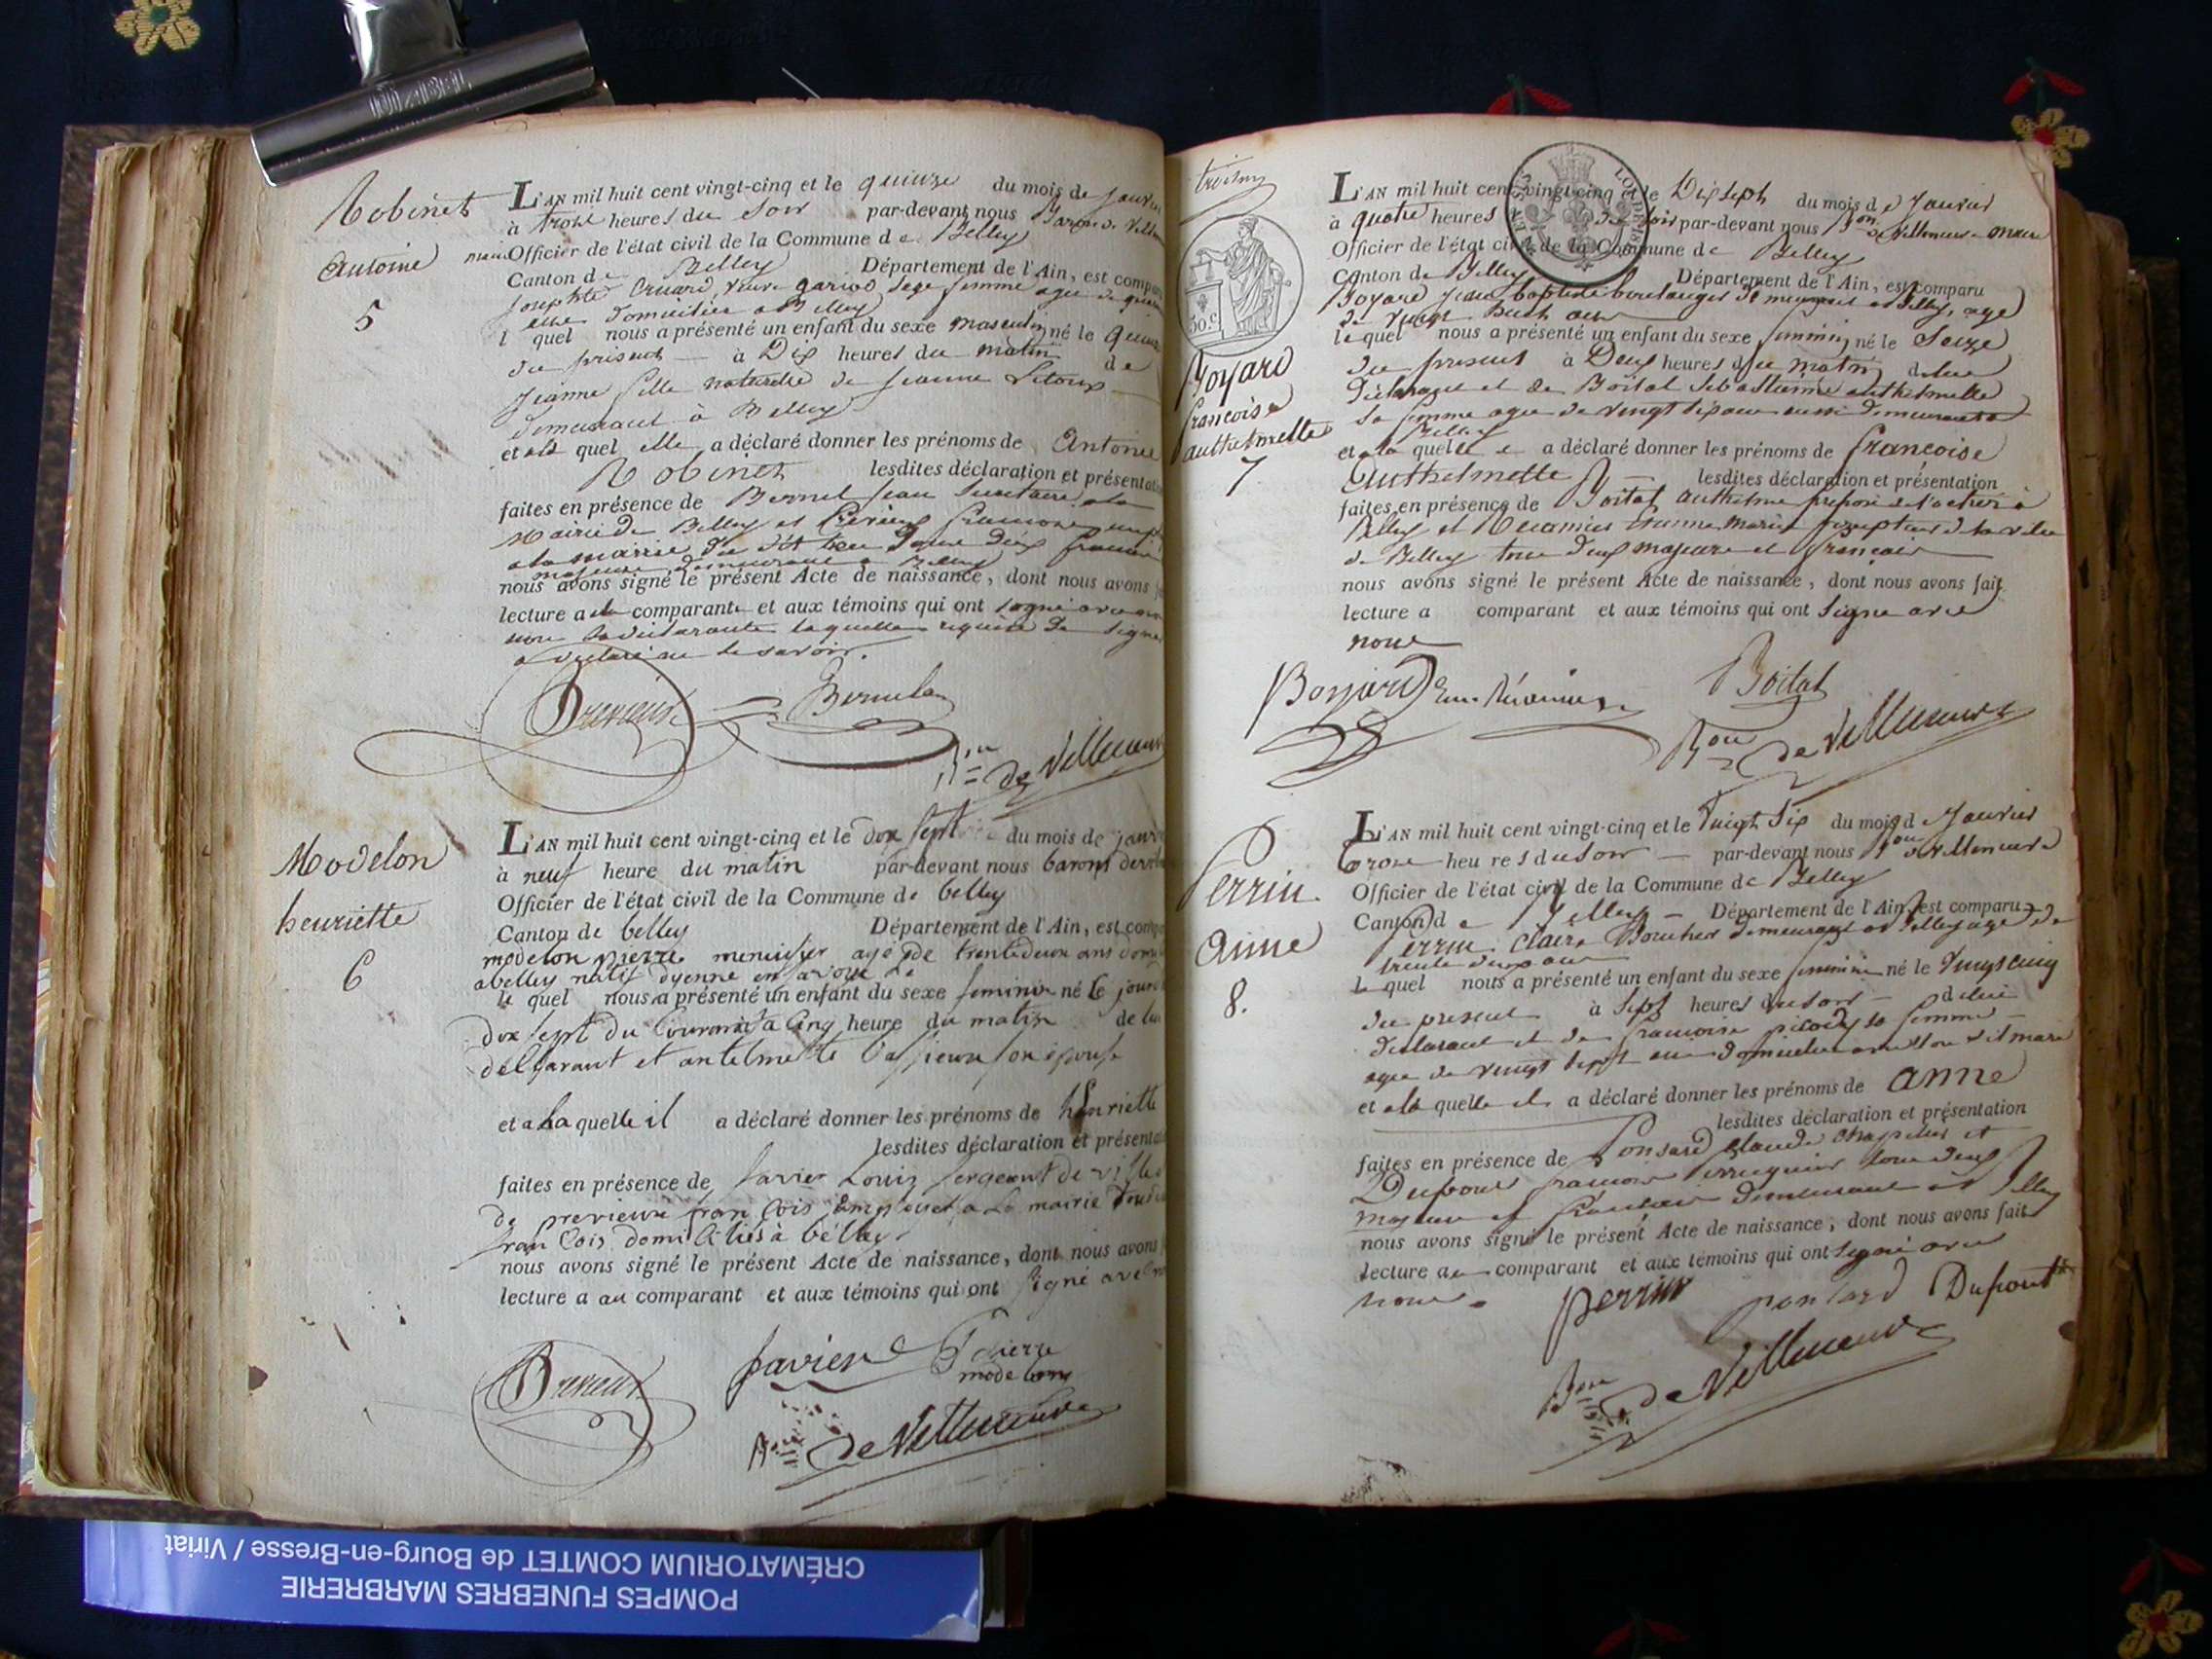 Robinet
Antoine
5
L'AN mil huit cent vingt-cinq et le quinze du mois de Janvier
à trois heures du soir par-devant nous Baron de Villen
maire Officier de l'état civil de la Commune de Belley
Canton de Belley Département de l'Ain, est comparu
veuve sage femme agée de
domiciliée a Belley
l quel nous a présenté un enfant du sexe masculin né le quinze
du présent à Dix heures du matin de
Jeanne fille naturelle de Jeanne
demeurant à Belley
et a la quel elle a déclaré donner les prénoms de Antoine
Robinet lesdites déclaration et présentation
faites en présence de Bernel Jean Secrétaire a la
Mairie de Belley et Prévieux françois
a la mairie du dit lieu
majeurs demeurant a Belley
nous avons signé le présent Acte de naissance, dont nous avons f
lecture a la comparante et aux témoins qui ont signé avec
non la déclarante laquelle requise de signer
a déclaré ne le savoir.
Previeux
Bon de Villeneuve
Modelon
henriette
6
L'AN mil huit cent vingt-cinq et le dix sept du mois de janv
à neuf heure du matin par-devant nous baron
Officier de l'état civil de la Commune de belley
Canton de belley Département de l'Ain, est comp
modelon pierre menuisier agé de trente deux ans
a belley natif dyenne en
le quel nous a présenté un enfant du sexe feminin né le jour
dix sept du Courant à Cinq heure du matin de lui
déclarant et antelmette son épouse
et a la quelle il a déclaré donner les prénoms de henriette
lesdites déclaration et présentat
faites en présence de Savier Louis sergeant de ville
de previeux franCois Employet a La mairie
franCois domiCiliés à belley
nous avons signé le présent Acte de naissance, dont nous avons
lecture a au comparant et aux témoins qui ont signé avec
Previeux
Savier
Pierre
modelon
Bon de Villeneuve
50.c
Boyard
francoise
anthelmette
7
L'AN mil huit cent vingt-cinq et le Dix sept du mois de Janvier
à quatre heures du soir par-devant nous Bon de Villeneuve maire
Officier de l'état civil de la Commune de Belley
Canton de Belley Département de l'Ain, est comparu
Boyard Jean baptiste boulanger demeurant a Belley, agé
de vingt huit ans
le quel nous a présenté un enfant du sexe feminin né le Seize
du present à Deux heures du matin de lui
Déclarant et de Boitat Sébastienne anthelmette
sa femme agée de vingt six ans aussi demeurant a
Belley
et a la quelle a déclaré donner les prénoms de francoise
Anthelmette lesdites déclaration et présentation
faites en présence de Boitat anthelme préposé de l'octroi à
Belley et Récamier Etienne Marie percepteur de la ville
de Belley tous deux majeurs et français
nous avons signé le présent Acte de naissance, dont nous avons fait
lecture a comparant et aux témoins qui ont signé avec
nous
Boyard
Boitat
Bon de Villeneuve
Perrin
anne
8.
L'AN mil huit cent vingt-cinq et le Vingt Six du mois d Janvier
à trois heures du soir par-devant nous Bon de Villeneuve
Officier de l'état civil de la Commune de Belley
Canton de Belley Département de l'Ain, est comparu
Perrin Claire Boucher demeurant a Belley agé de
trente deux ans
le quel nous a présenté un enfant du sexe feminin né le Vingt cinq
du present à Sept heures du soir de lui
déclarant et de francoise sa femme
agée de vingt sept ans domiciliée avec son dit mari
et a la quelle il a déclaré donner les prénoms de anne
lesdites déclaration et présentation
faites en présence de Ponsard Claude chapelier et
Dupont francois perruquier tous deux
majeurs et francais demeurant a Belley
nous avons signé le présent Acte de naissance, dont nous avons fait
lecture au comparant et aux témoins qui ont signé avec
nous.
perrin ponsard Dupont
Bon de Villeneuve
POMPES FUNEBRES MARBRERIE
CRÉMATORIUM COMTET de Bourg-en-Bresse / Viriat